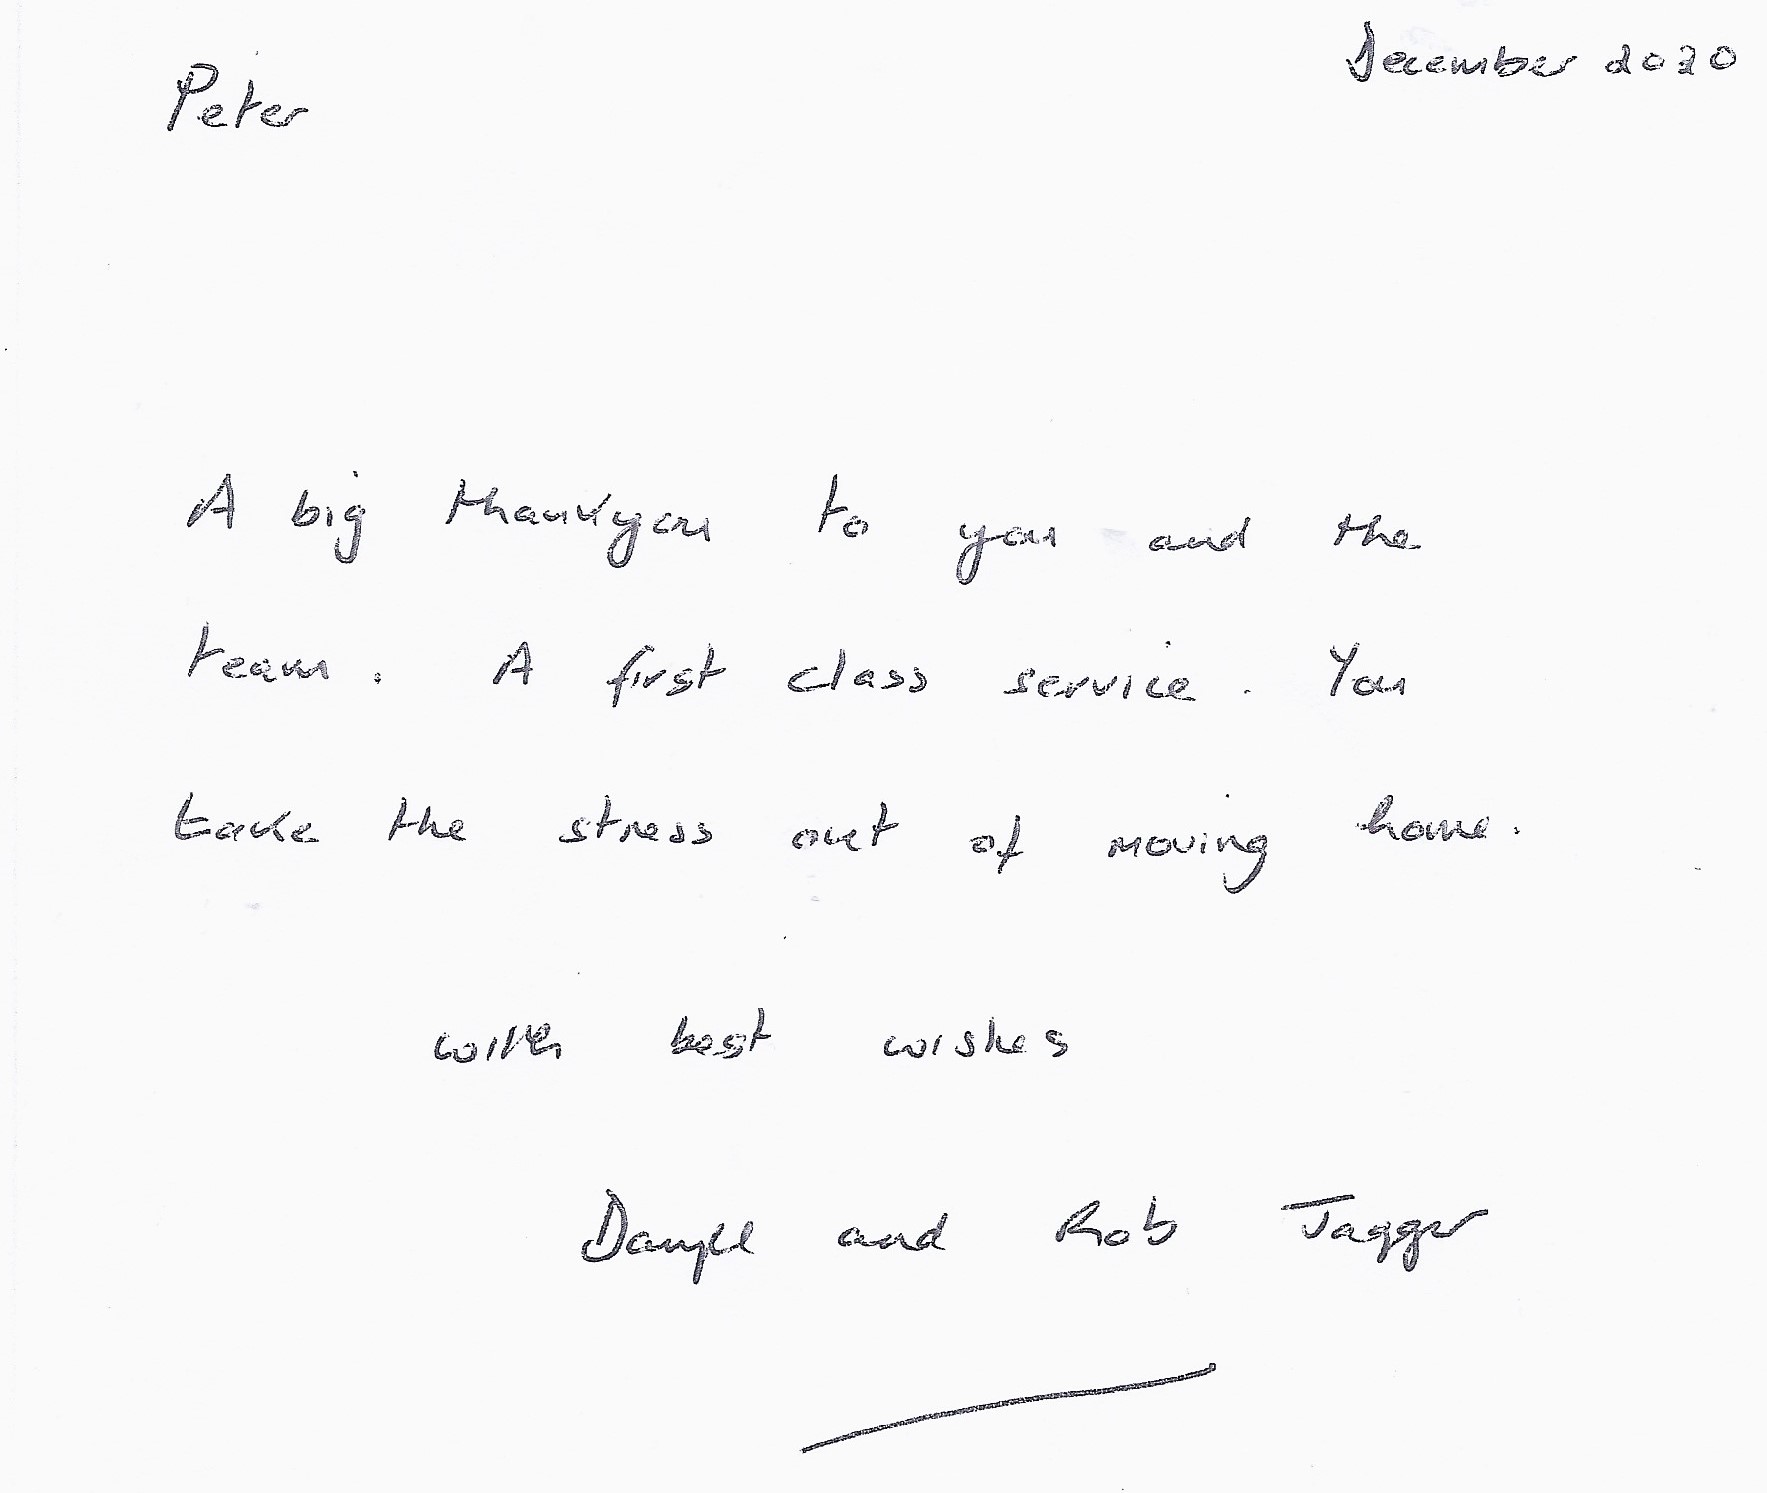 December 2020
Peter
A big thankyou to you and the
team. A first class service. You
take the stress out of moving home.
with best wishes
and Rob Jagger